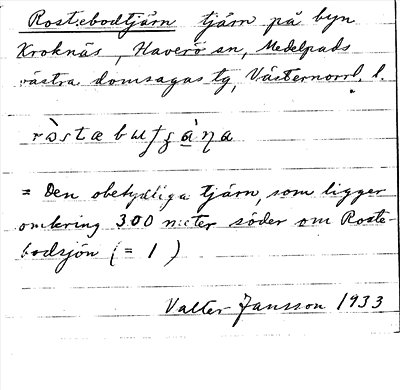 Rostebodtjärn tjärn på byn
Kroknäs, Haverö sn, Medelpads
västra domsagas tg, Västernorrl. l.
= Den obetydliga tjärn, som ligger
omkring 300 meter söder om Roste-
bodsjön (= 1)
Valter Jansson 1933